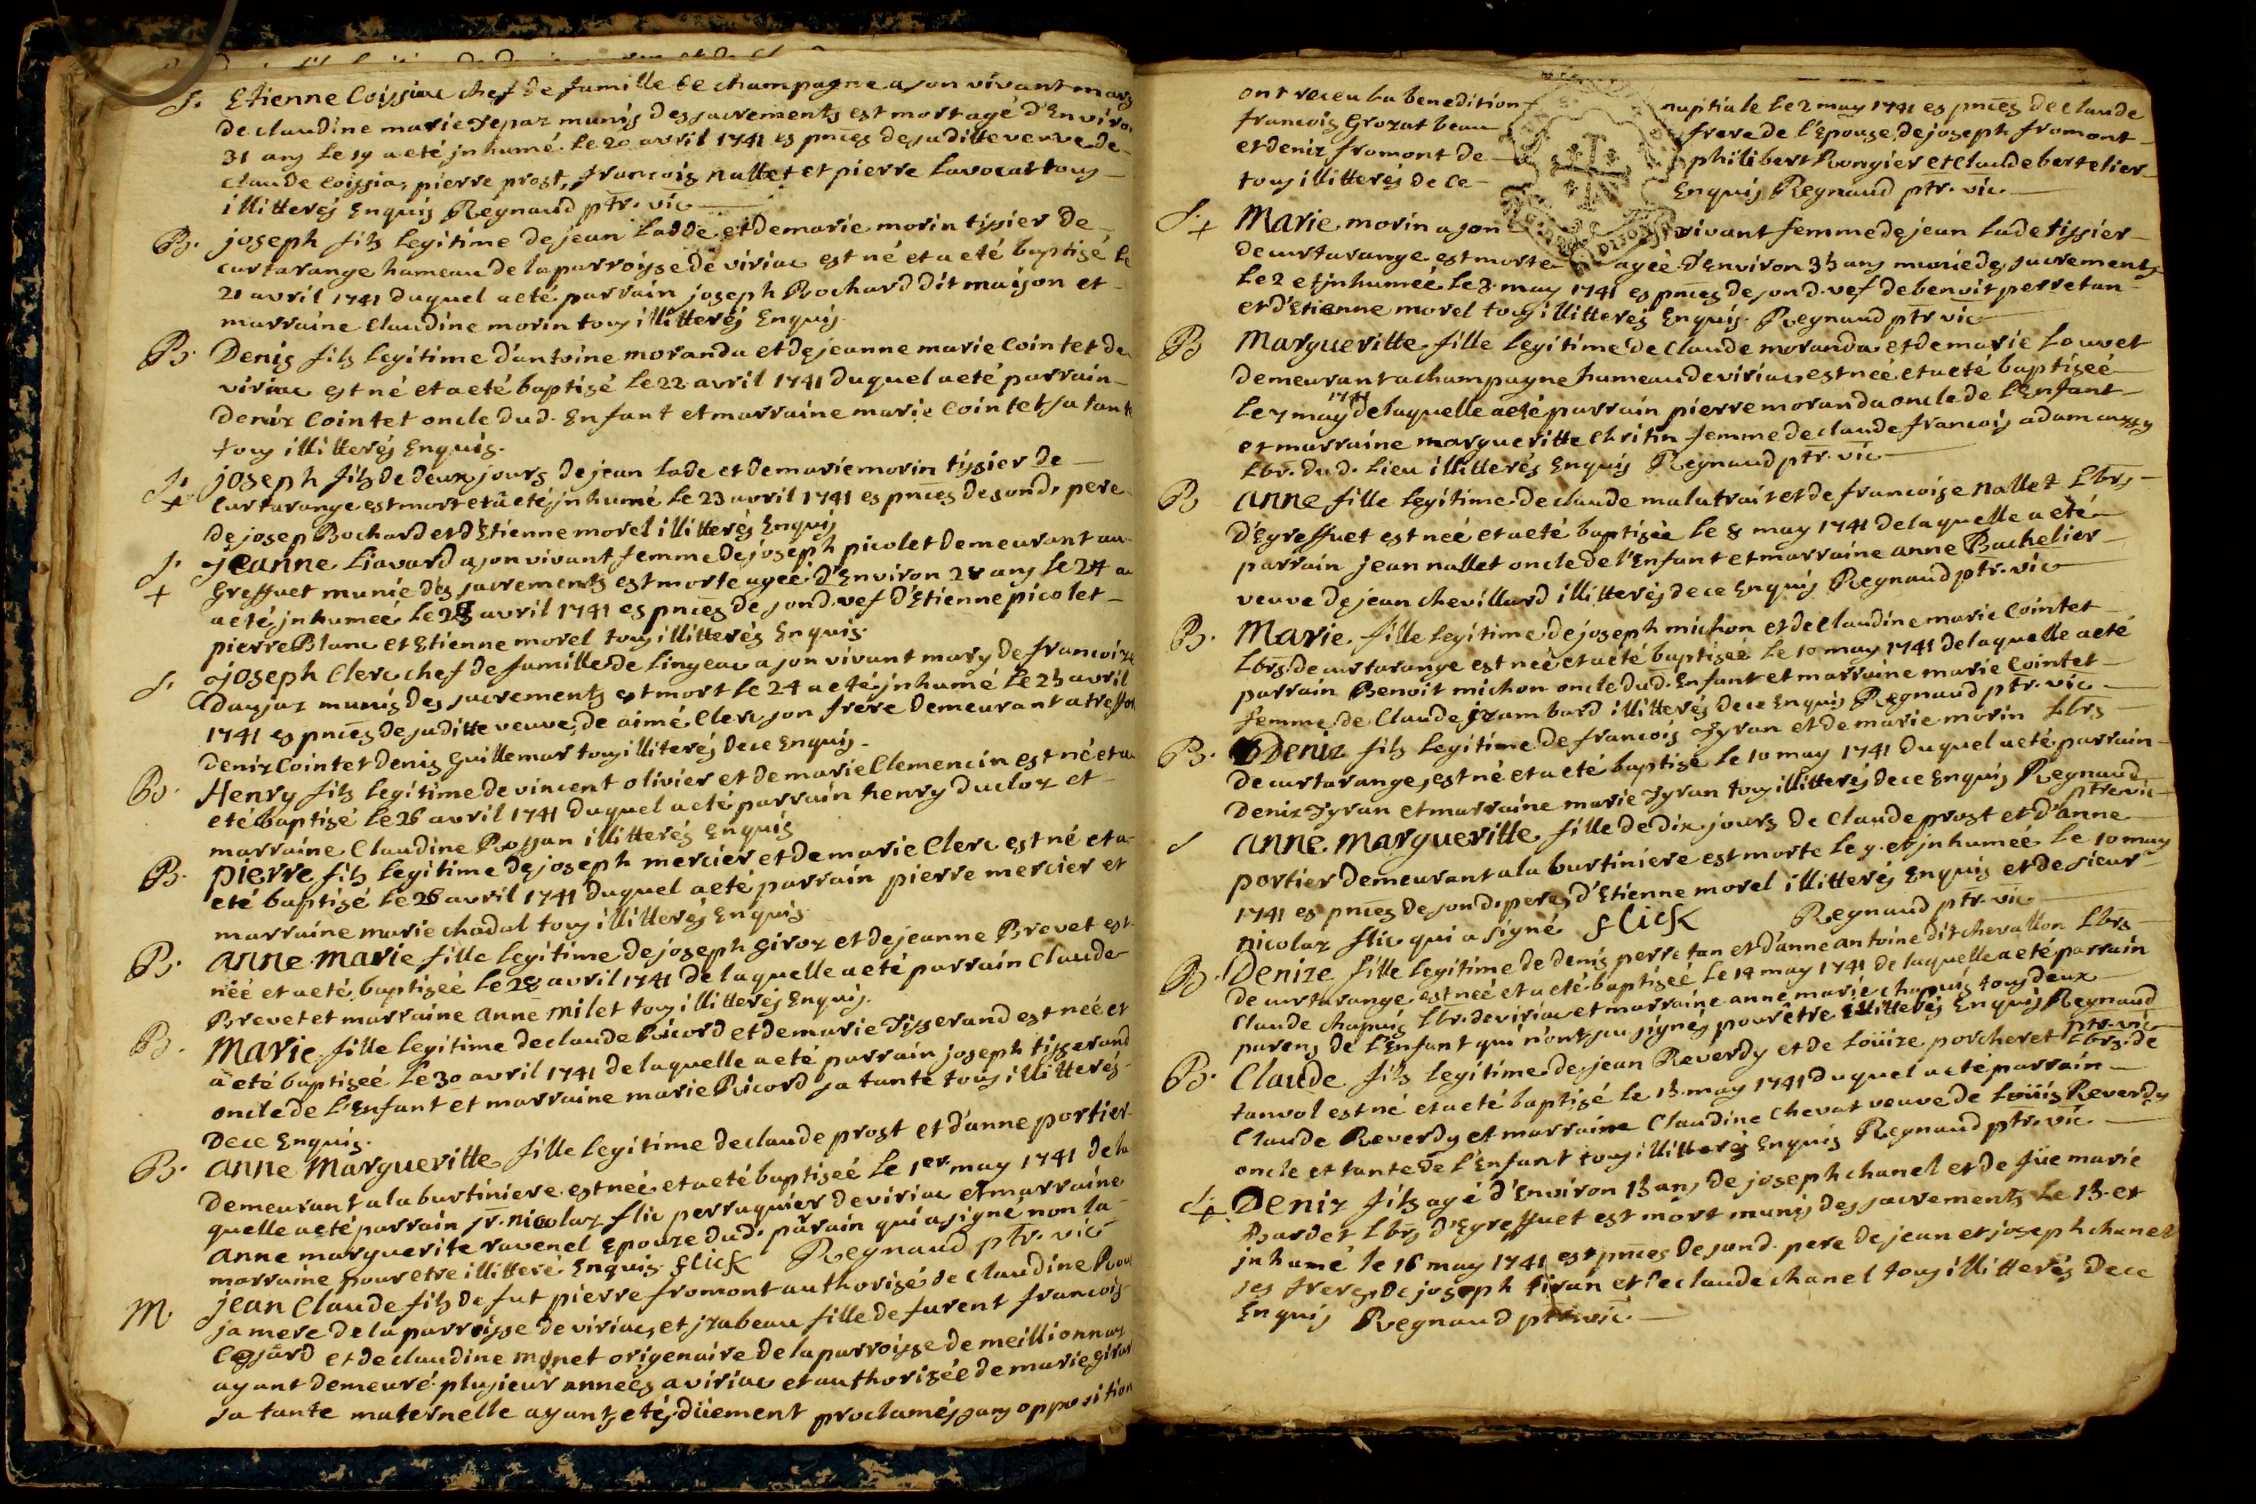 S. Etienne Coissiac chef de famille de champagne a son vivant mary
de claudine marie Tepaz munis des sacrements est mort agé d'Environ
31 ans le 19 a eté jnhumé le 20 avril 1741 es pnces de sa ditte veuve de
claude Coissia, pierre prost, francois nallet et pierre Lavocat tous
illitterés Enquis Regnaud ptr. vic
B. joseph fils legitime de jean Lade et de marie morin tissier de
curtarange hameau de la parroisse de viriac est né et a eté baptisé le
21 avril 1741 duquel a eté parrain joseph Bochard dit maison et
marraine Claudine morin tous illitterés Enquis.
B. Denis fils legitime d'antoine moranda et de jeanne marie Cointet de
viriac est né et a eté baptisé le 22 avril 1741 duquel a eté parrain
Deniz Cointet oncle dud. Enfant et marraine marie Cointet sa tante
tous illitterés Enquis.
S. + joseph fils de deux jours de jean Lade et de marie morin tissier de
Curtarange est mort et a eté jnhumé le 23 avril 1741 es pnces de sond. pere
de josep Bochard et d'Etienne morel illitterés Enquis
S. + jeanne Liavard a son vivant femme de joseph picolet demeurant au
Greffuet munie des sacrements est morte agée d'Environ 28 ans le 24 a
a eté jnhumeé le 28 avril 1741 es pnces de sond. vef d'Etienne picolet
pierre Blanc et Etienne morel tous illitterés Enquis.
S. joseph Clerc chef de famille de Lingeac a son vivant mary de francoize
Daujaz munis des sacrements est mort le 24 a eté jnhumé le 25 avril
1741 es pnces de sa ditte veuve, de aimé Clerc son frere demeurant a treffort
deniz Cointet denis Guillemar tous illiterés de ce Enquis.
B. Henry fils legitime de vincent olivier et de marie Clemencin est né et a
eté baptisé le 26 avril 1741 duquel a eté parrain henry Ducloz et
marraine Claudine Rossan illitterés Enquis
B. pierre fils legitime de joseph mercier et de marie Clerc est né et a
eté baptisé le 26 avril 1741 duquel a eté parrain pierre mercier et
marraine marie chadal tous illitterés Enquis.
B. anne marie fille legitime de joseph Giroz et de jeanne Brevet est
néé et a eté baptiseé le 28 avril 1741 de laquelle a eté parrain Claude
Brevet et marraine anne milet tous illitterés Enquis.
B. Marie fille legitime de claude Ricord et de marie Tisserand est neé et
a eté baptiseé le 30 avril 1741 de laquelle a eté parrain joseph tisserand
oncle de l'Enfant et marraine marie Ricord sa tante tous illitterés
De ce Enquis.
B. anne Margueritte fille legitime de claude prost et d'anne portier
demeurant a la burtiniere est neé et a eté baptiseé le 1er may 1741 de la
quelle a eté parrain sr. nicolaz flic perruquier de viriac et marraine
anne marguerite ravenel Epouze dud. parrain qui a signé non la
marraine pour etre illitteré Enquis. flick Regnaud ptr. vic
M. jean Claude fils de fut pierre fromont authorisé de claudine
sa mere de la parroisse de viriac, et jzabeau fille de furent francois
et de claudine monet origenaire de la parroisse de meillionnaz
ayant demeuré plusieur anneés a viriac et authorisée de marie Girar
sa tante maternelle ayants etés düement proclamés sans opposition
ont receu la benedition nuptiale le 2 may 1741 es pnces de claude
francois Grozat beau frere de l'Epouse, de joseph fromont
et deniz fromont de philibert Rongier et claude bertelier
tous illitterés de ce Enquis Regnaud ptr. vic
S. + Marie morin a son vivant femme de jean Lade tissier
de curtarange est morte ageé d'Environ 35 ans munie des sacrements
le 2 et jnhumeé le 3 may 1741 es pnces de sond. vef de benoit perretan
et d'Etienne morel tous illitterés Enquis. Regnaud ptr vic
B Margueritte fille legitime de Claude moranda et de marie Louvet
demeurant a champagne hameau de viriac est neé et a eté baptiseé
le 7 may 1741 de laquelle a eté parrain pierre moranda oncle de l'Enfant
et marraine margueritte Chritin femme de claude francois
Lbr. dud. lieu illitterés Enquis Regnaud ptr. vic
B anne fille legitime de claude malatrait et de francoise nallet Lbrs
D'Egreffuet est neé et a eté baptiseé le 8 may 1741 de laquelle a eté
parrain jean nallet oncle de l'Enfant et marraine anne Bachelier
veuve de jean chevillard illitterés de ce Enquis Regnaud ptr. vic
B. Marie fille legitime de joseph michon et de Claudine marie Cointet
Lbrs. de curtarange est neé et a eté baptiseé le 10 may 1741 de laquelle a eté
parrain Benoit michon oncle dud. Enfant et marraine marie Cointet
femme de Claude jzambard illitterés de ce Enquis Regnaud ptr. vic
B. Deniz fils legitime de francois Tyran et de marie morin Lbrs
de curtarange, est né et a eté baptisé le 10 may 1741 duquel a eté parrain
Deniz Tyran et marraine marie Tyran tous illitterés de ce Enquis Regnaud
ptr. vic
S anne Margueritte fille de dix jours de Claude prost et d'anne
portier demeurant a la burtiniere est morte le 9. et jnhumeé le 10 may
1741 es pnces de sond. pere, d'Etienne morel illitterés Enquis et de sieur
nicolaz flic qui a signé flick Regnaud ptr. vic
B. Denize fille legitime de denis perretan et d'anne antoine dit chevallon Lbrs
de curtarange est neé et a eté baptiseé le 14 may 1741 de laquelle a eté parrain
Claude chapuis Lbr. de viriac et marraine anne marie chapuis tous deux
parens de l'Enfant qui n'ont su signés pour être illitterés Enquis Regnaud
ptr. vic
B. Claude fils legitime de jean Reverdy et de Loüize porcheret Lbrs. de
tanvol est né et a eté baptisé le 15 may 1741 duquel a eté parrain
Claude Reverdy et marraine Claudine Chevat veuve de Loüis Reverdy
oncle et tante de l'Enfant tous illitterés Enquis Regnaud ptr. vic
S. + Deniz fils agé d'Environ 15 ans de joseph chanel et de füe marie
Bardet Lbrs d'Egreffuet est mort munis des sacrements le 15. et
jnhumé le 16 may 1741 es pnces de sond. pere de jean et joseph chanel
ses freres, de joseph tiran et de claude chanel tous illitterés de ce
Enquis Regnaud ptr. vic